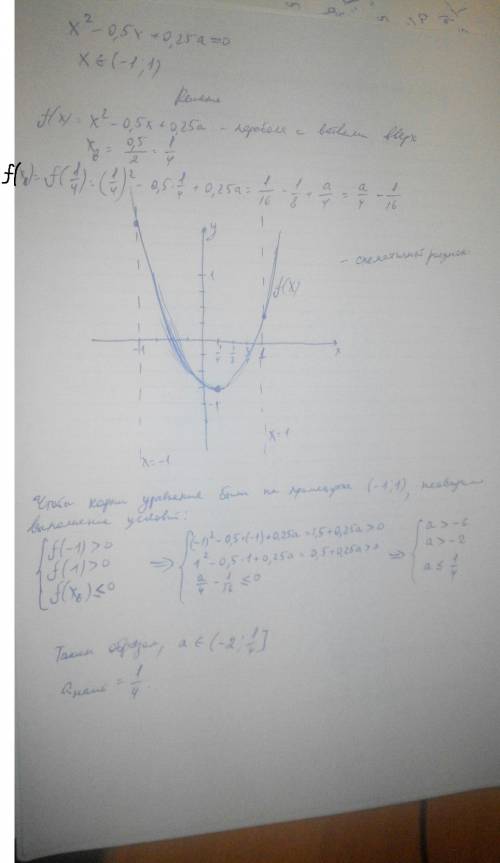 x² - 0,5x + 0,25a = 0
x ∈ (-1; 1)
Решение
f(x) = x² - 0,5x + 0,25a - парабола с ветвями вверх
x_в = 0,5/2 = 1/4
f(x_в) = f(1/4) = (1/4)² - 0,5·1/4 + 0,25a = 1/16 - 1/8 + a/4 = a/4 - 1/16
y
- схематичный рисунок
1
f(x)
-1 1/4 1/2 3/4 1 x
-1
x=-1 x=1
Чтобы корни уравнения были на промежутке (-1; 1), необходимо
выполнение условий:
{ f(-1) > 0 => { (-1)² - 0,5·(-1) + 0,25a = 1,5 + 0,25a > 0 => { a > -6
f(1) > 0 1² - 0,5·1 + 0,25a = 0,5 + 0,25a > 0 a > -2
f(x_в) ≤ 0 a/4 - 1/16 ≤ 0 a ≤ 1/4
Таким образом, a ∈ (-2; 1/4]
a_наиб = 1/4.